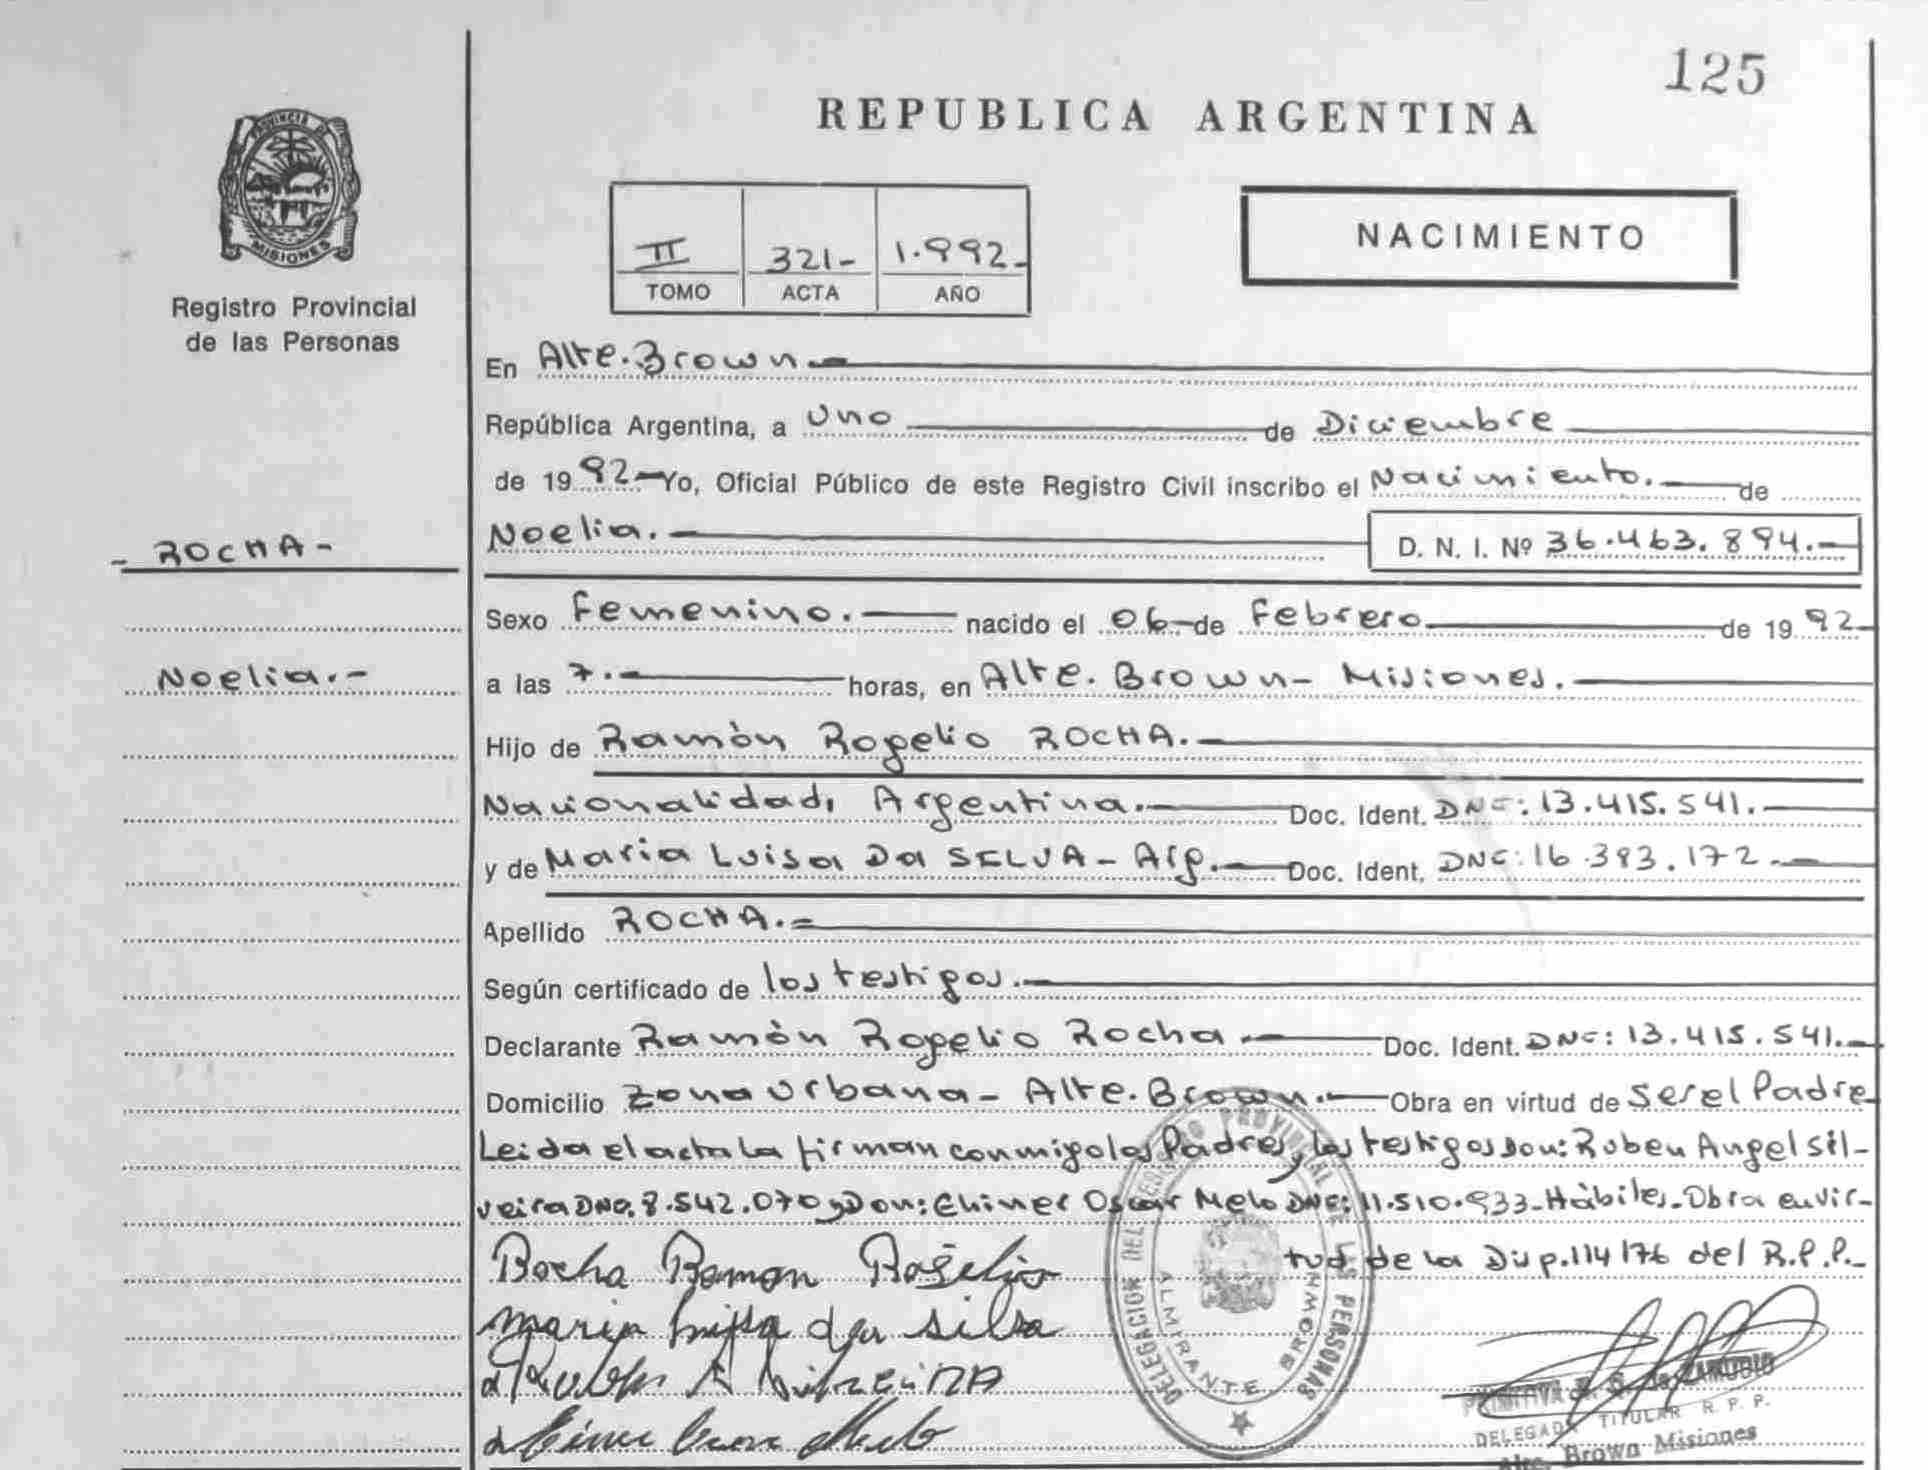 125
REPUBLICA ARGENTINA
PROVINCIA DE
MISIONES
Registro Provincial
de las Personas
II 321- 1.992-
TOMO ACTA AÑO
NACIMIENTO
En Alte. Brown.-
República Argentina, a Uno de Diciembre
de 1992- Yo, Oficial Público de este Registro Civil inscribo el Nacimiento. de
- ROCHA -
Noelia. D. N. I. Nº 36.463.894.-
Sexo Femenino. nacido el 06- de Febrero de 1992-
Noelia.-
a las 7.- horas, en Alte. Brown- Misiones.
Hijo de Ramón Rogelio ROCHA.-
Nacionalidad, Argentina.- Doc. Ident. DNI: 13.415.541.-
y de Maria Luisa Da SILVA - Arg. Doc. Ident. DNI: 16.383.172.-
Apellido ROCHA.=
Según certificado de los testigos.-
Declarante Ramón Rogelio Rocha.- Doc. Ident. DNI: 13.415.541.-
Domicilio Zona Urbana - Alte. Brown.- Obra en virtud de Ser el Padre
Leida el acta la firman conmigo los Padres y los testigos Don: Ruben Angel Sil-
veira DNI. 8.542.070 y Don: Ehimer Oscar Melo DNI: 11.510.933- Hábiles. Obra en vir-
tud de la Disp. 114/76 del R.P.P.-
Rocha Ramon Rogelio
maria luisa da silva
Melo
DELEGACION DEL REGISTRO PROVINCIAL DE LAS PERSONAS
ALMIRANTE BROWN
ZAMUDIO
DELEGADA TITULAR R. P. P.
Alte. Brown Misiones